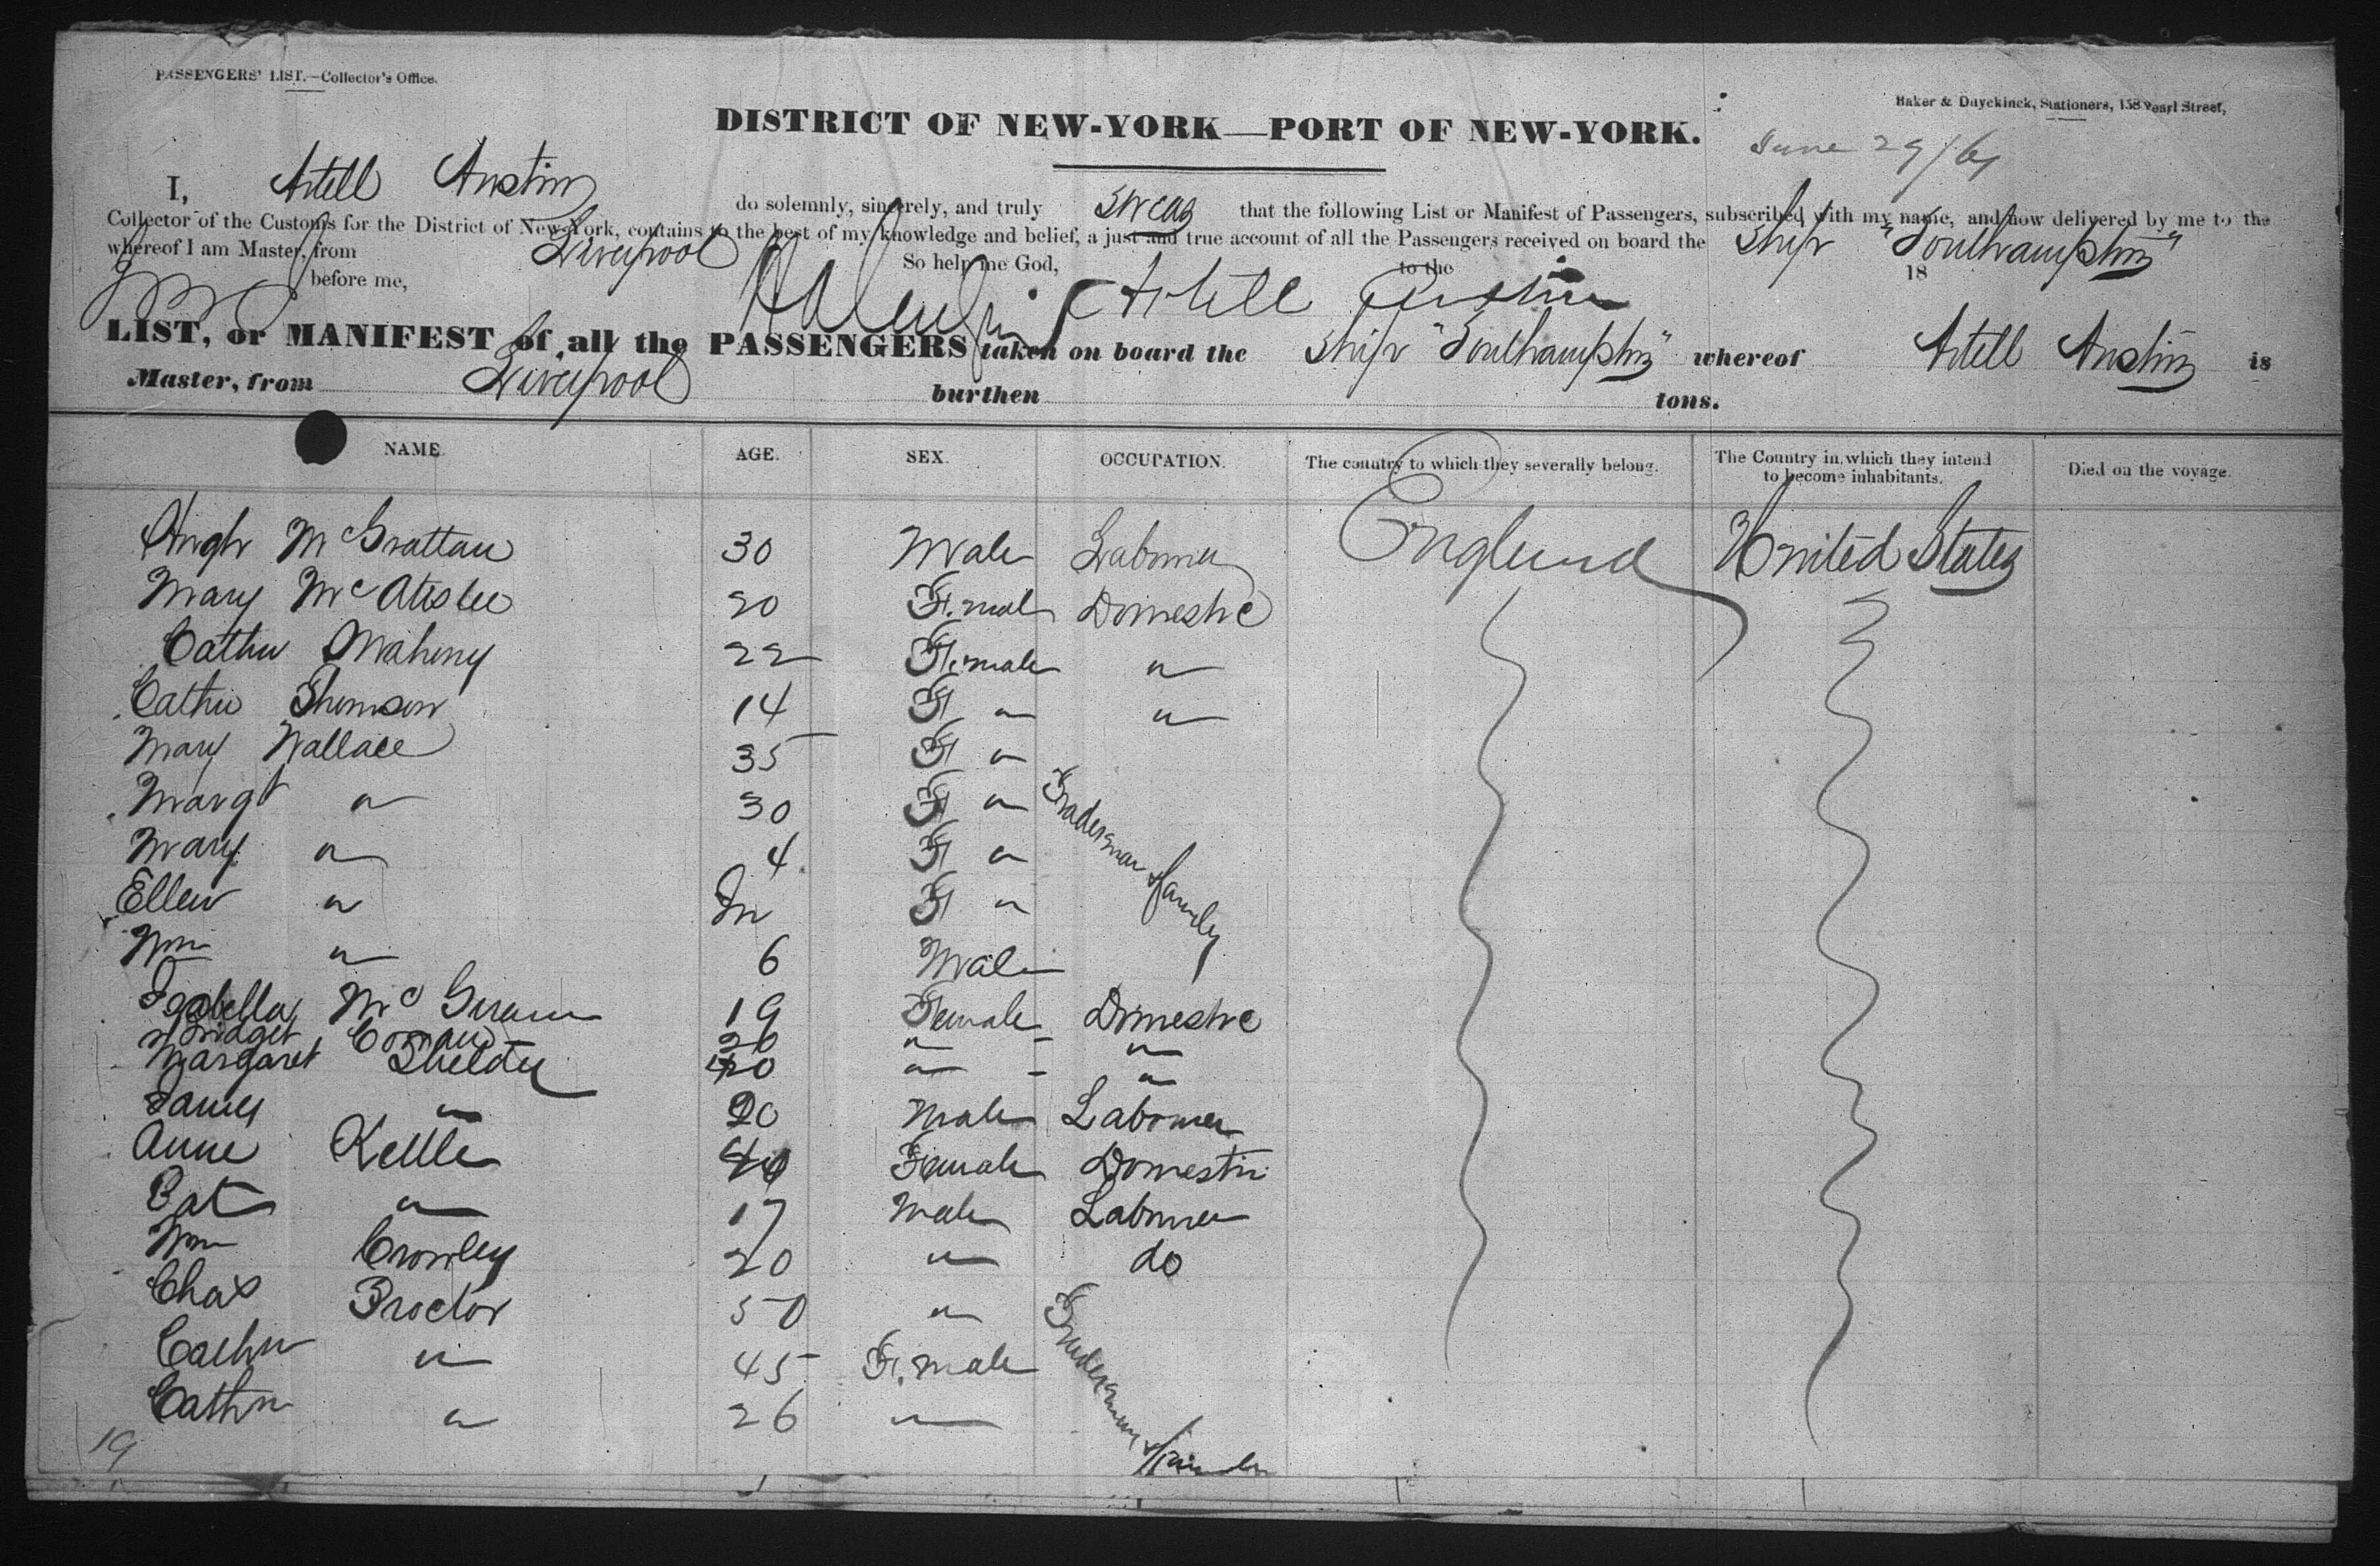 PASSENGERS' LIST.—Collector's Office.
Baker & Duyckinck, Stationers, 158 Pearl Street,
DISTRICT OF NEW-YORK—PORT OF NEW-YORK.
June 29/61
I, Artell Austin do solemnly, sincerely, and truly swear that the following List or Manifest of Passengers, subscribed with my name, and now delivered by me to the
Collector of the Customs for the District of New-York, contains to the best of my knowledge and belief, a just and true account of all the Passengers received on board the Ship "Southampton"
whereof I am Master, from Liverpool
So help me God,
to the
18
before me,
Artell Austin
LIST, or MANIFEST of all the PASSENGERS taken on board the Ship "Southampton" whereof Artell Austin is
Master, from Liverpool burthen tons.
NAME. AGE. SEX. OCCUPATION. The country to which they severally belong. The Country in which they intend to become inhabitants. Died on the voyage.
Hugh McGrattan 30 Male Labourer England United States
Mary McAtislee 20 Female Domestic
Cathn Mahony 22 Female "
Cathn Thomson 14 F "
Mary Wallace 35 F " Tradesman & family
Margt " 30 F "
Mary " 4 F "
Ellen " In F "
Wm " 6 Male
Isabella Mc 19 Female Domestic
Bridget Conan 20 " "
Margaret 40 " "
James " 20 Male Labourer
Anne Kettle 40 Female Domestic
Pat " 17 Male Labourer
Wm Crowley 20 " do
Chas Proctor 50 " Tradesman & family
Cathn " 45 Female
Cathn " 26 "
19